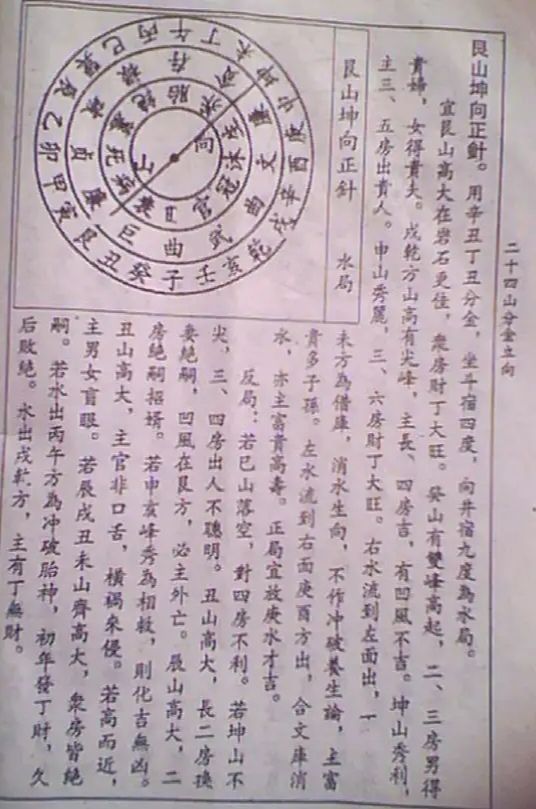 二十四山分金立向
艮山坤向正針。用辛丑丁丑分金，坐斗宿四度，向井宿九度為水局。
宜艮山高大在岩石更佳，衆房財丁大旺。癸山有雙峰高起，二、三房男得
貴婦，女得貴夫。戌乾方山高有尖峰，主長、四房吉，有凹風不吉。坤山秀利，
主三、五房出貴人。申山秀麗，三、六房財丁大旺。右水流到左面出，丁
未方為借庫，消水生向，不作冲破養生論，主富
貴多子孫。左水流到右面庚酉方出，合文庫消
水，亦主富貴高壽。正局宜放庚水才吉。
反局：若巳山落空，對四房不利。若坤山不
尖，三、四房出人不聰明。丑山高大，長二房換
妻絶嗣，凹風在艮方，必主外亡。辰山高大，二
房絶嗣招婿。若申亥峰秀為相救，則化吉無凶。
丑山高大，主官非口舌，橫禍來侵。若高而近，
主男女盲眼。若辰戌丑未山齊高大，衆房皆絶
嗣。若水出丙午方為冲破胎神，初年發丁財，久
后敗絶。水出戌乾方，主有丁無財。
艮山坤向正針 水局
艮丑癸子壬亥乾戌辛酉庚申坤未丁午丙巳巽辰乙卯甲寅
巨曲武曲文廉祿存貞廉
養官冠沐生胎絶墓死病
向